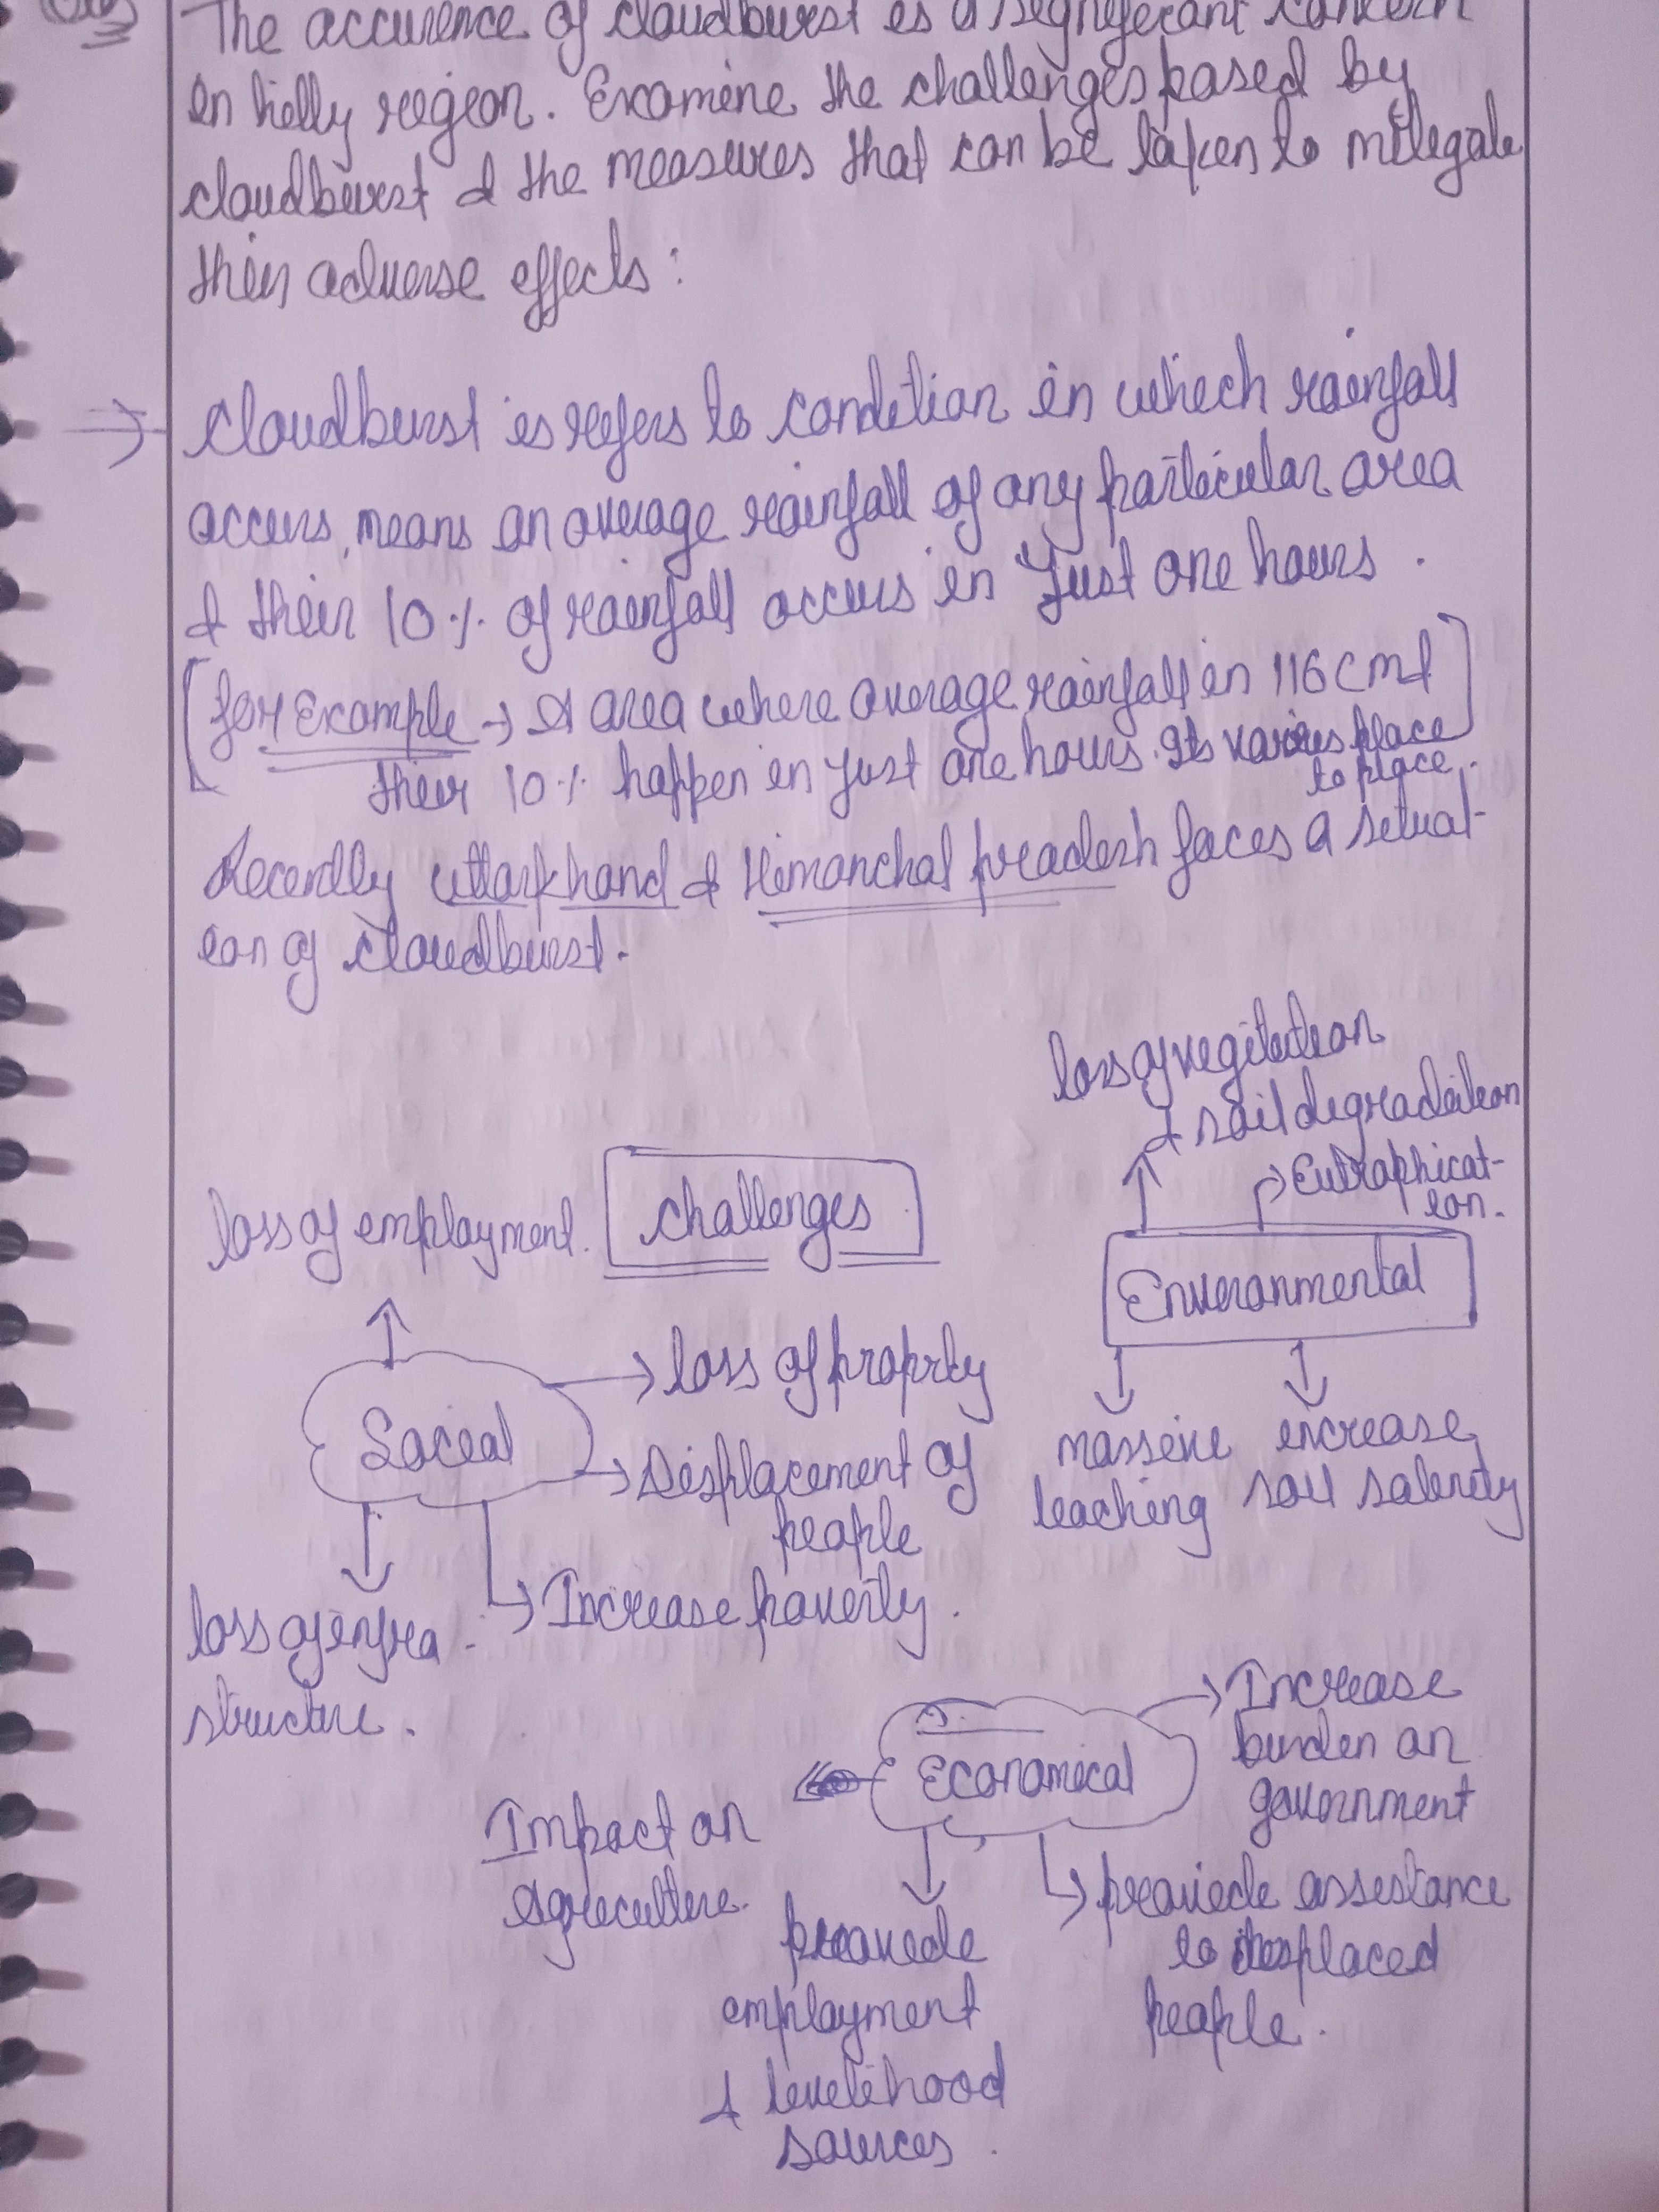 The accurence of cloudburst is a significant concern
in hilly region. Examine the challenges posed by
cloudburst & the measures that can be taken to mitigate
their adverse effects :
→ Cloudburst is refers to condition in which rainfall
occurs, means an average rainfall of any particular area
& their 10 % of rainfall occurs in Just one hours .
[for Example → A area where average rainfall in 116 cm &
their 10 % happen in Just one hours. Its varies place
to place.]
Recently uttarkhand & Himanchal pradesh faces a situat-
ion of cloudburst.
loss of vegitation
& soil degradation
→ Eutrophicat-
ion.
loss of employment.
Challenges
Environmental
→ loss of proprty
Social
→ Displacement of
people
massive
leaching
increase
soil salinity
→ Increase poverty .
loss of infra -
structure .
→ Increase
burden on
government
Economical
Impact on
Agriculture.
→ provide assistance
to displaced
people .
provide
employment
& livelihood
sources .